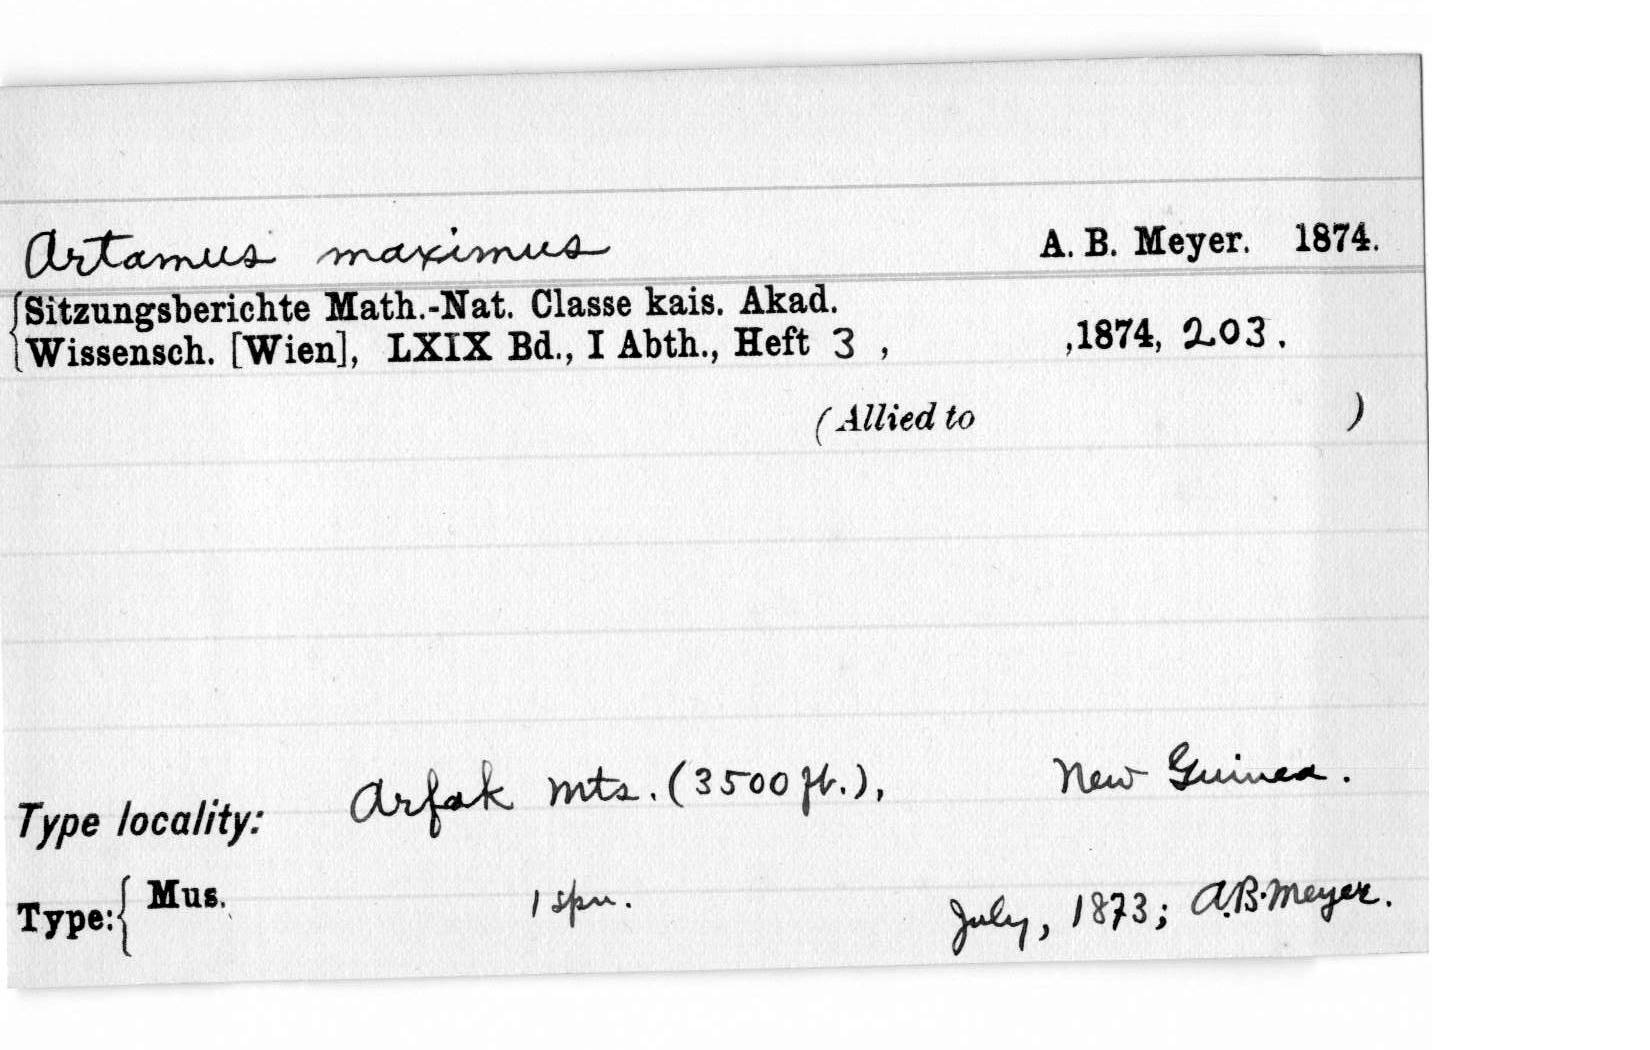 Artamus maximus A. B. Meyer. 1874.
Sitzungsberichte Math.-Nat. Classe kais. Akad.
Wissensch. [Wien], LXIX Bd., I Abth., Heft 3 , ,1874, 203.
(Allied to )
Type locality: Arfak Mts. (3500 ft.), New Guinea.
Type: Mus. 1 spn. July, 1873; A.B. Meyer.